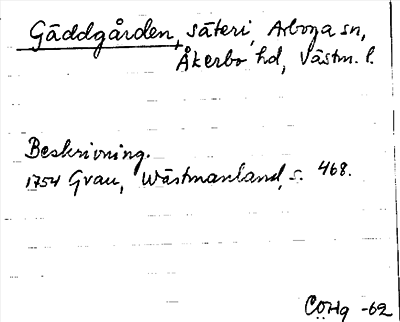 Gäddgården, säteri, Arboga sn,
Åkerbo hd, Västm. l.
Beskrivning.
1754 Grau, Wästmanland, s. 468.
CÖHg -62